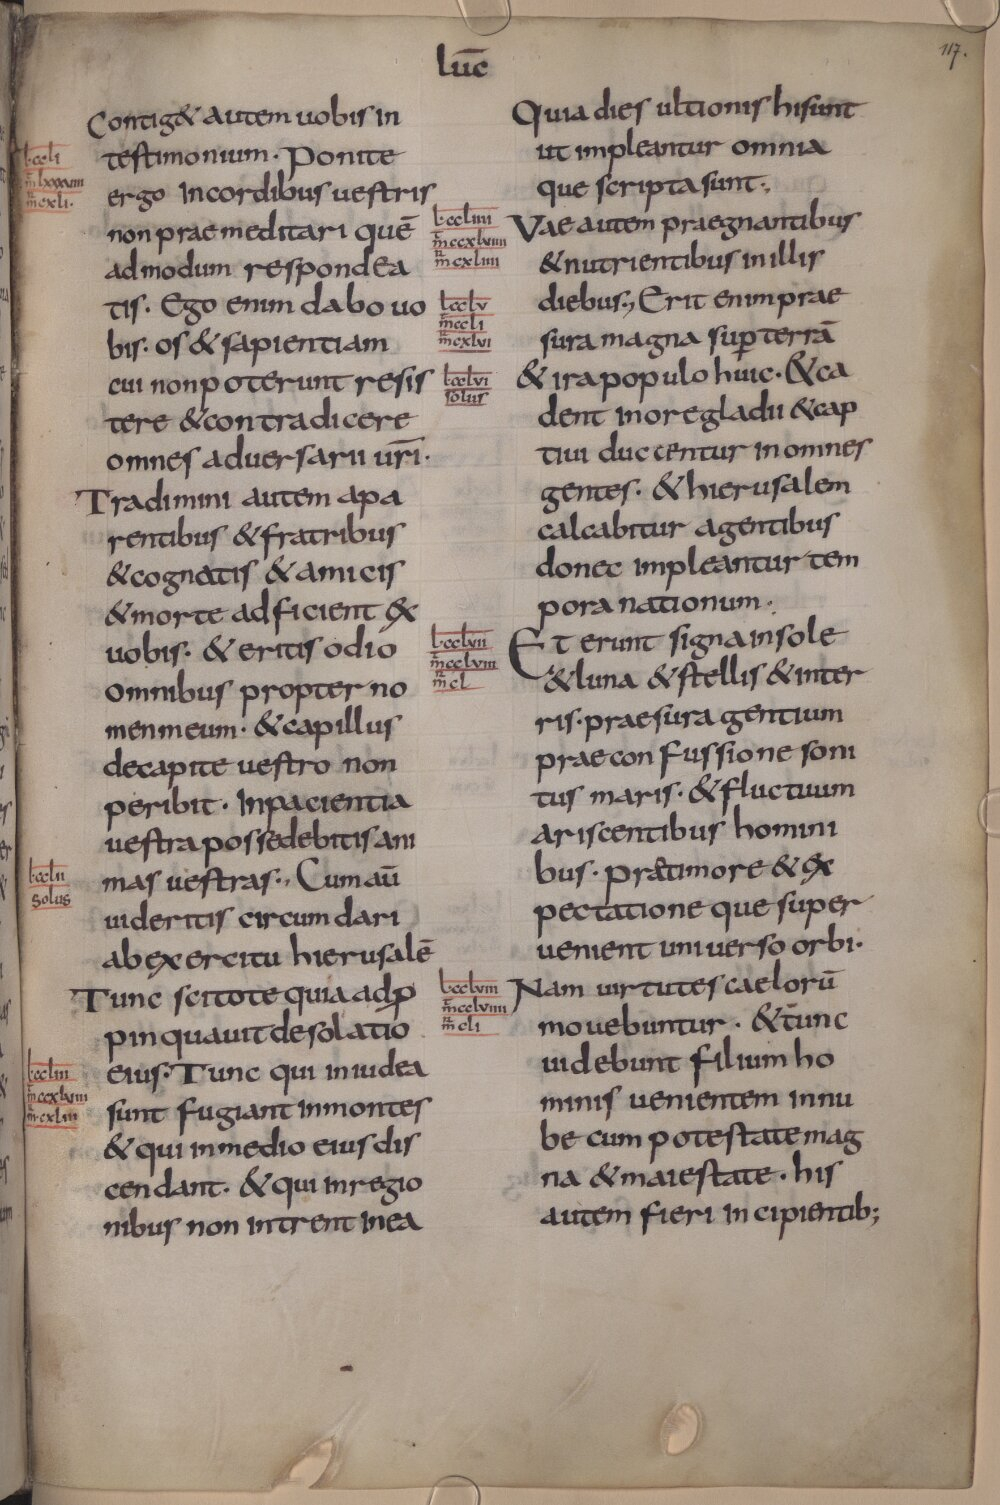 lūc
117.
Contig& autem uobis in
testimonium. Ponite
ergo incordibus uestris
non praemeditari quē
admodum respondea
tis. Ego enim dabo uo
bis. os & sapientiam
cui non poterunt resis
tere & contradicere
omnes aduersarii ur̄i.
Tradimini autem apa
rentibus & fratribus
& cognatis & amicis
& morte adficient ex
uobis. & eritis odio
omnibus propter no
men meum. & capillus
decapite uestro non
peribit. Inpacientia
uestra possedebitis ani
mas uestras., Cum aū
uideritis circumdari
ab exercitu hierusalē
Tunc scitote quia adp̄
pinquauit desolatio
eius. Tunc qui iniudea
sunt fugiant inmontes
& qui inmedio eius dis
cendant. & qui inregio
nibus non intrent inea
l ccli
m lxxxuiii
m cxli.
l cclii
solus
l ccliii
m ccxluiii
m cxliii
Quia dies ultionis hisunt
ut impleantur omnia
que scripta sunt.,
Vae autem praegnantibus
& nutrientibus inillis
diebus., Erit enim prae
sura magna sup̱ terrā
& ira populo huic. & ca
dent inore gladii & cap
tiui duccentur in omnes
gentes. & hierusalem
calcabitur agentibus
donec impleantur tem
pora nationum.
Et erunt signa insole
& luna & stellis & inter
ris. praesura gentium
prae confussione soni
tus maris. & fluctuum
ariscentibus homini
bus. prae timore & ex
pectatione que super
uenient uniuerso orbi.
Nam uirtutes caelorū
mouebuntur. & tunc
uidebunt filium ho
minis uenientem innu
be cum potestate mag
na & maiestate. his
autem fieri incipientib;
l ccliiii
m ccxluiiii
m cxliiii
l cclv
m ccli
m cxlvi
l cclvi
solus
l cclvii
m cclviii
m cl
l cclviii
m cclviiii
m cli